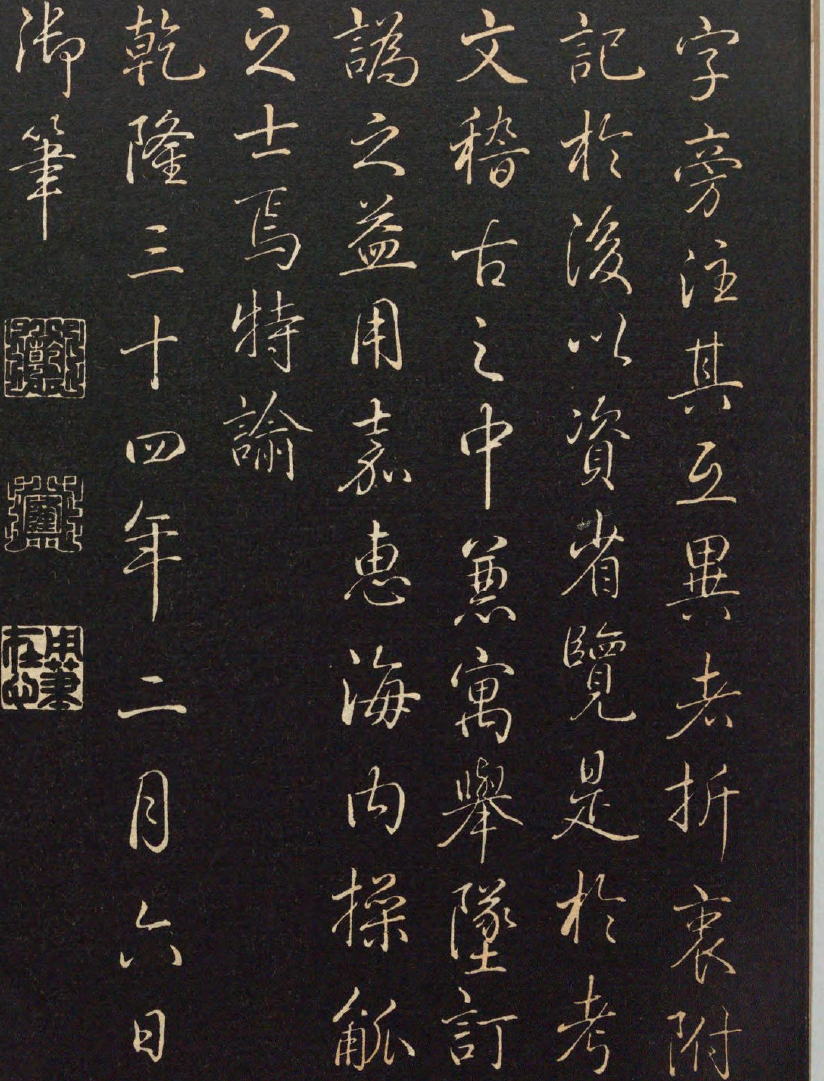 字旁注其互異者折衷附
記於後以資省覽是於考
文稽古之中兼寓舉墜訂
譌之益用嘉惠海内操觚
之士焉特諭
乾隆三十四年二月六日
御筆